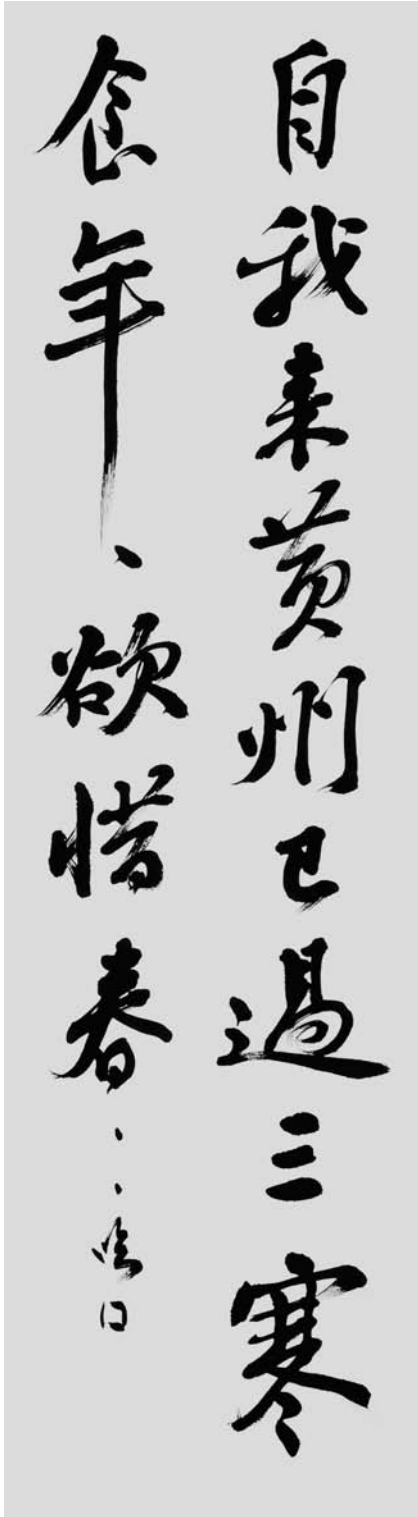 自我来黄州已過三寒
食年、欲惜春、、